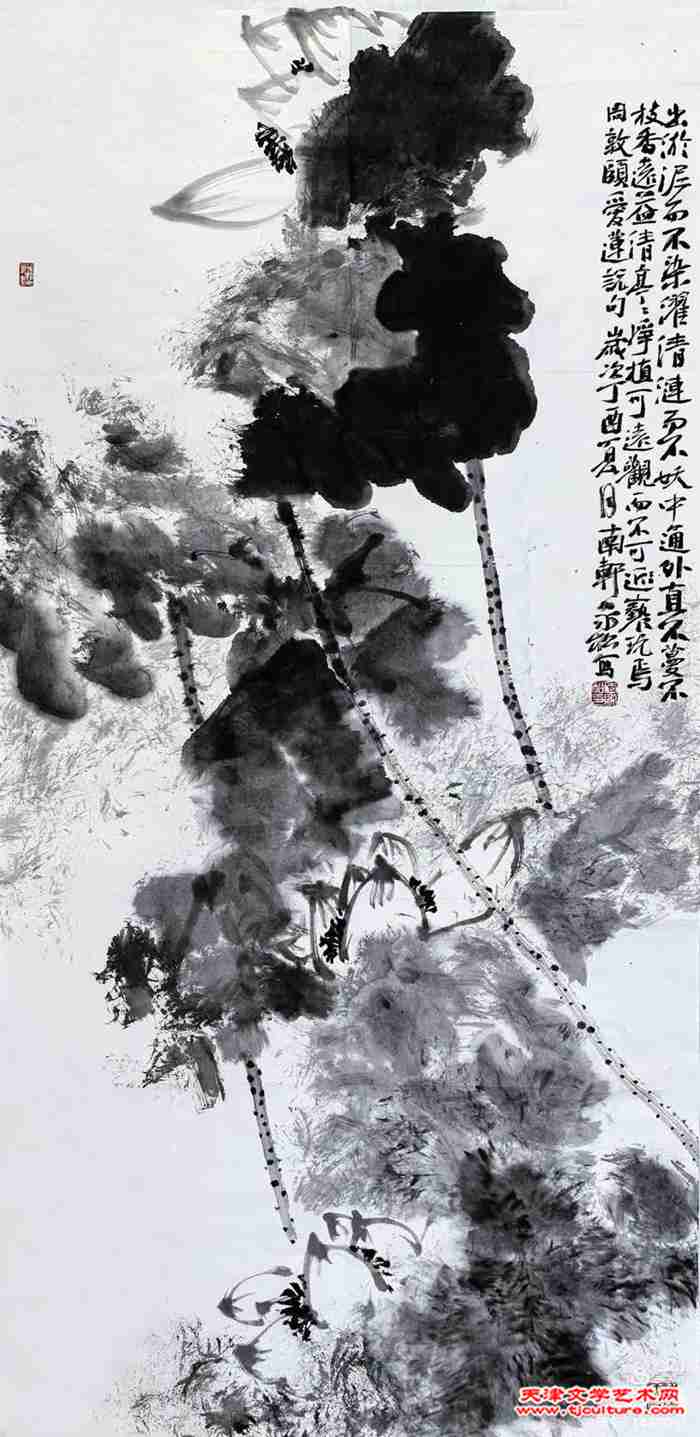 出淤泥而不染濯清漣而不妖中通外直不蔓不
枝香遠益清亭々淨植可遠觀而不可近褻玩焉
周敦頤愛蓮説句 歲次丁酉夏月南軒寫
天津文学艺术网
www.tjculture.com